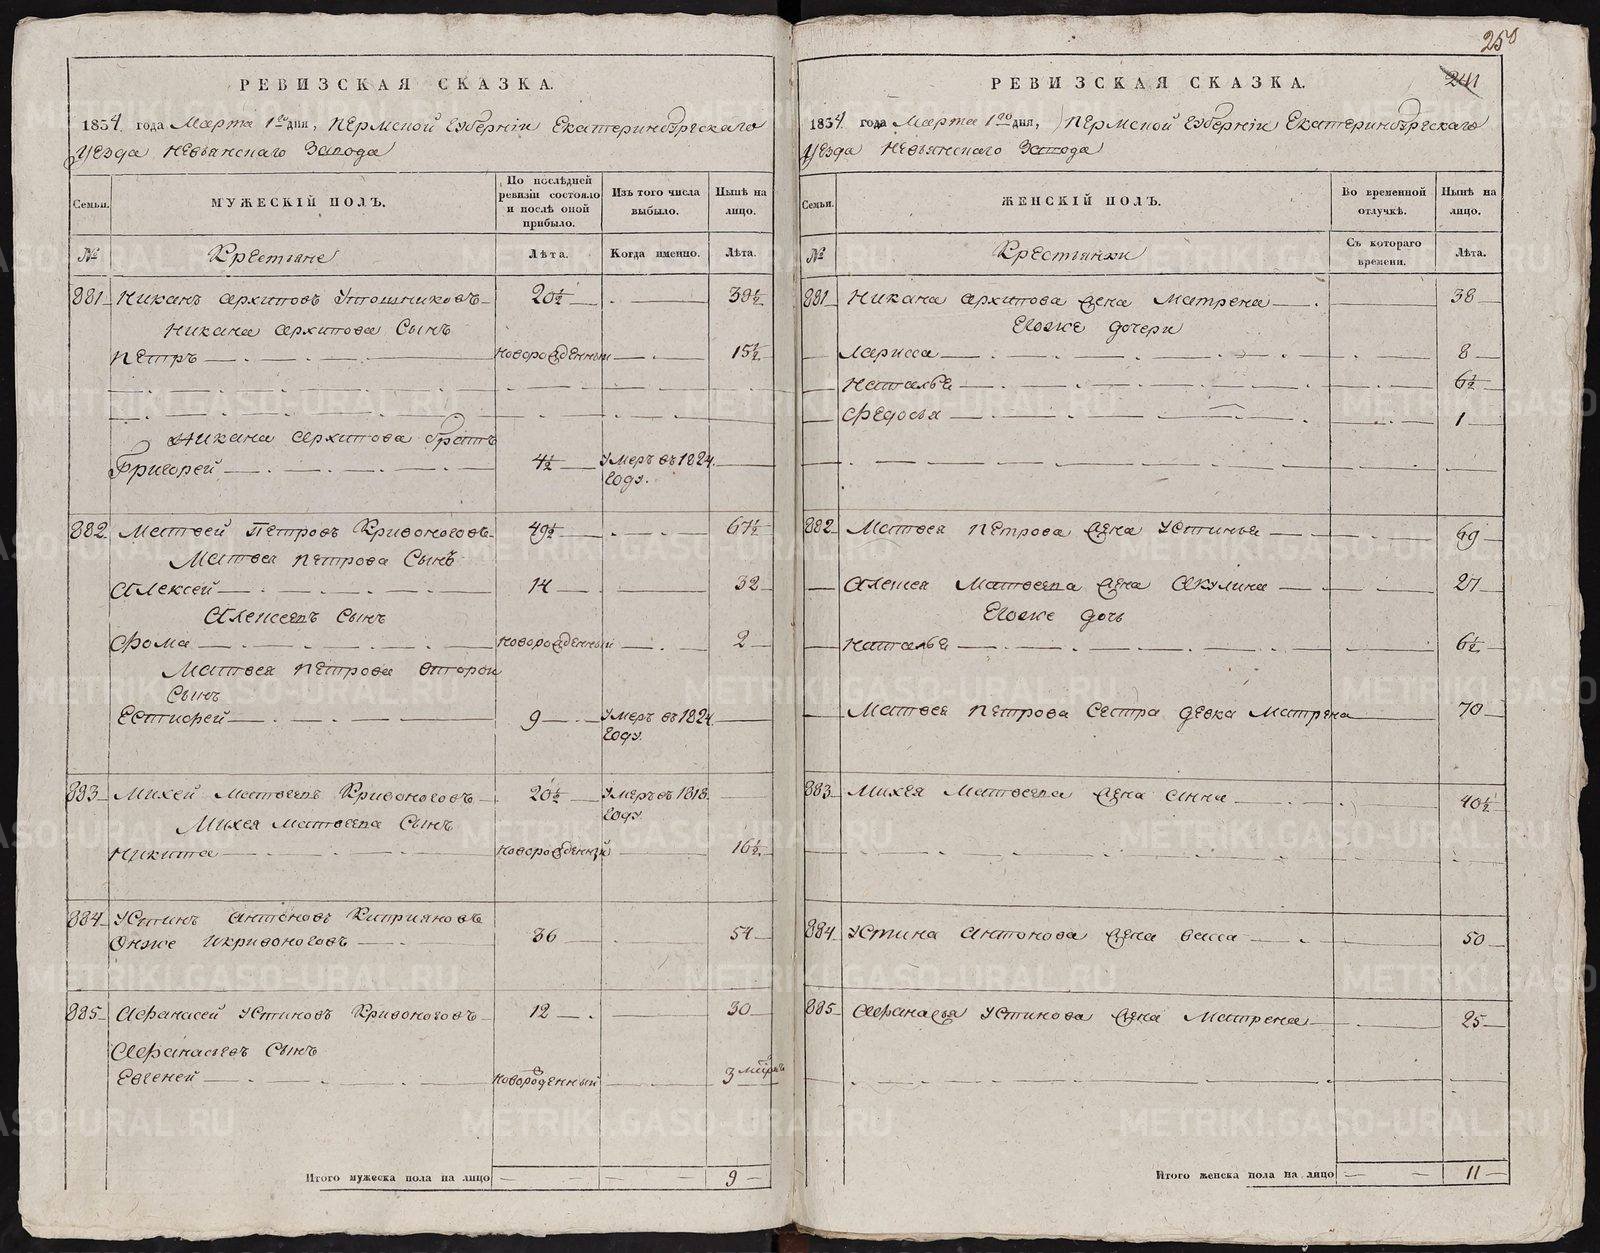 РЕВИЗСКАЯ СКАЗКА.
1834 года Марта 1го дня, Пермской Губерніи Екатеринбургскаго
Уезда Невьянскаго Завода
Семьи.
МУЖЕСКІЙ ПОЛЪ.
По послѣдней ревизіи состояло и послѣ оной прибыло.
Изъ того числа выбыло.
Нынѣ на лицо.
№
Крестьяне
Лѣта.
Когда именно.
Лѣта.
881 Никанъ Архиповъ 20½ 38½
Никана Архипова Сынъ
Петръ новорожденный 15½
Никана Архипова братъ
Григорей 4½ Умеръ въ 1824
году.
882 Матвей Петровъ Кривоноговъ 49½ 67½
Матвея Петрова Сынъ
Алексей 14 32
Алексеевъ Сынъ
Фома новорожденный 2
Матвея Петрова второй
Сынъ
Естифей 9 Умеръ въ 1824
году.
883 Михей Матвеевъ Кривоноговъ 20½ Умеръ въ 1818
году.
Михея Матвеева Сынъ
Никита новорожденный 16½
884 Устинъ Антоновъ Киприяновъ
Онже Икривоноговъ 36 54
885 Афанасей Устиновъ Кривоноговъ 12 30
Афанасьевъ Сынъ
Евгеней новорожденный 3
Итого мужеска пола на лицо 9
250
241
РЕВИЗСКАЯ СКАЗКА.
1834 года Марта 1го дня, Пермской Губерніи Екатеринбургскаго
Уезда Невьянскаго Завода
Семьи.
ЖЕНСКІЙ ПОЛЪ.
Во временной отлучкѣ.
Нынѣ на лицо.
№
Крестьянки
Съ котораго времени.
Лѣта.
881 Никана Архипова жена Матрена 38
Егоже дочери
Лариса 8
Наталья 6½
Федосья 1
882 Матвея Петрова жена Устинья 69
Алексея Матвеева жена Акулина 27
Егоже дочь
Наталья 6½
Матвея Петрова Сестра девка Матрена 70
883 Михея Матвеева жена Анна 40½
884 Устина Антонова жена Васса 50
885 Афанасья Устинова жена Матрена 25
Итого женска пола на лицо 11
METRIKI.GASO-URAL.RU